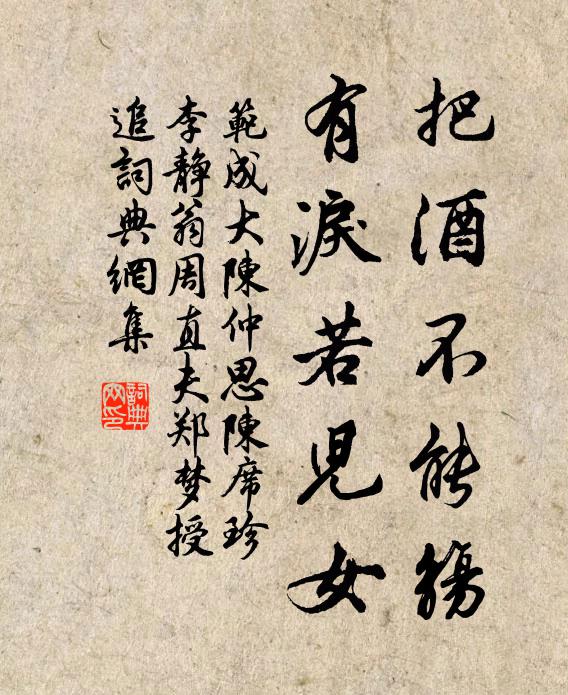 把酒不能觴
有淚若兒女
範成大陳仲思陳席珍
李靜翁周直夫郑梦授
追詞典網集
詞典
网印